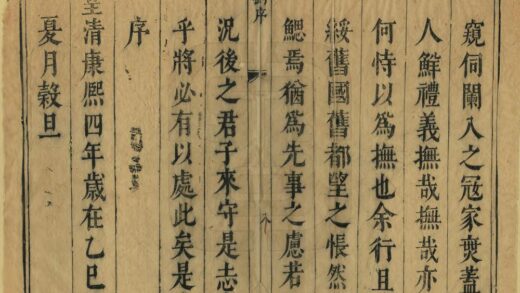 窺伺闌入之冦家蓋
人鮮禮義撫哉撫哉亦
何恃以為撫也余行且
綏舊國舊都望之悵然
鰓焉猶為先事之慮若
序
八
況後之君子來守是志
乎將必有以處此矣是
序
皇清康熙四年歲在乙巳
夏月榖旦